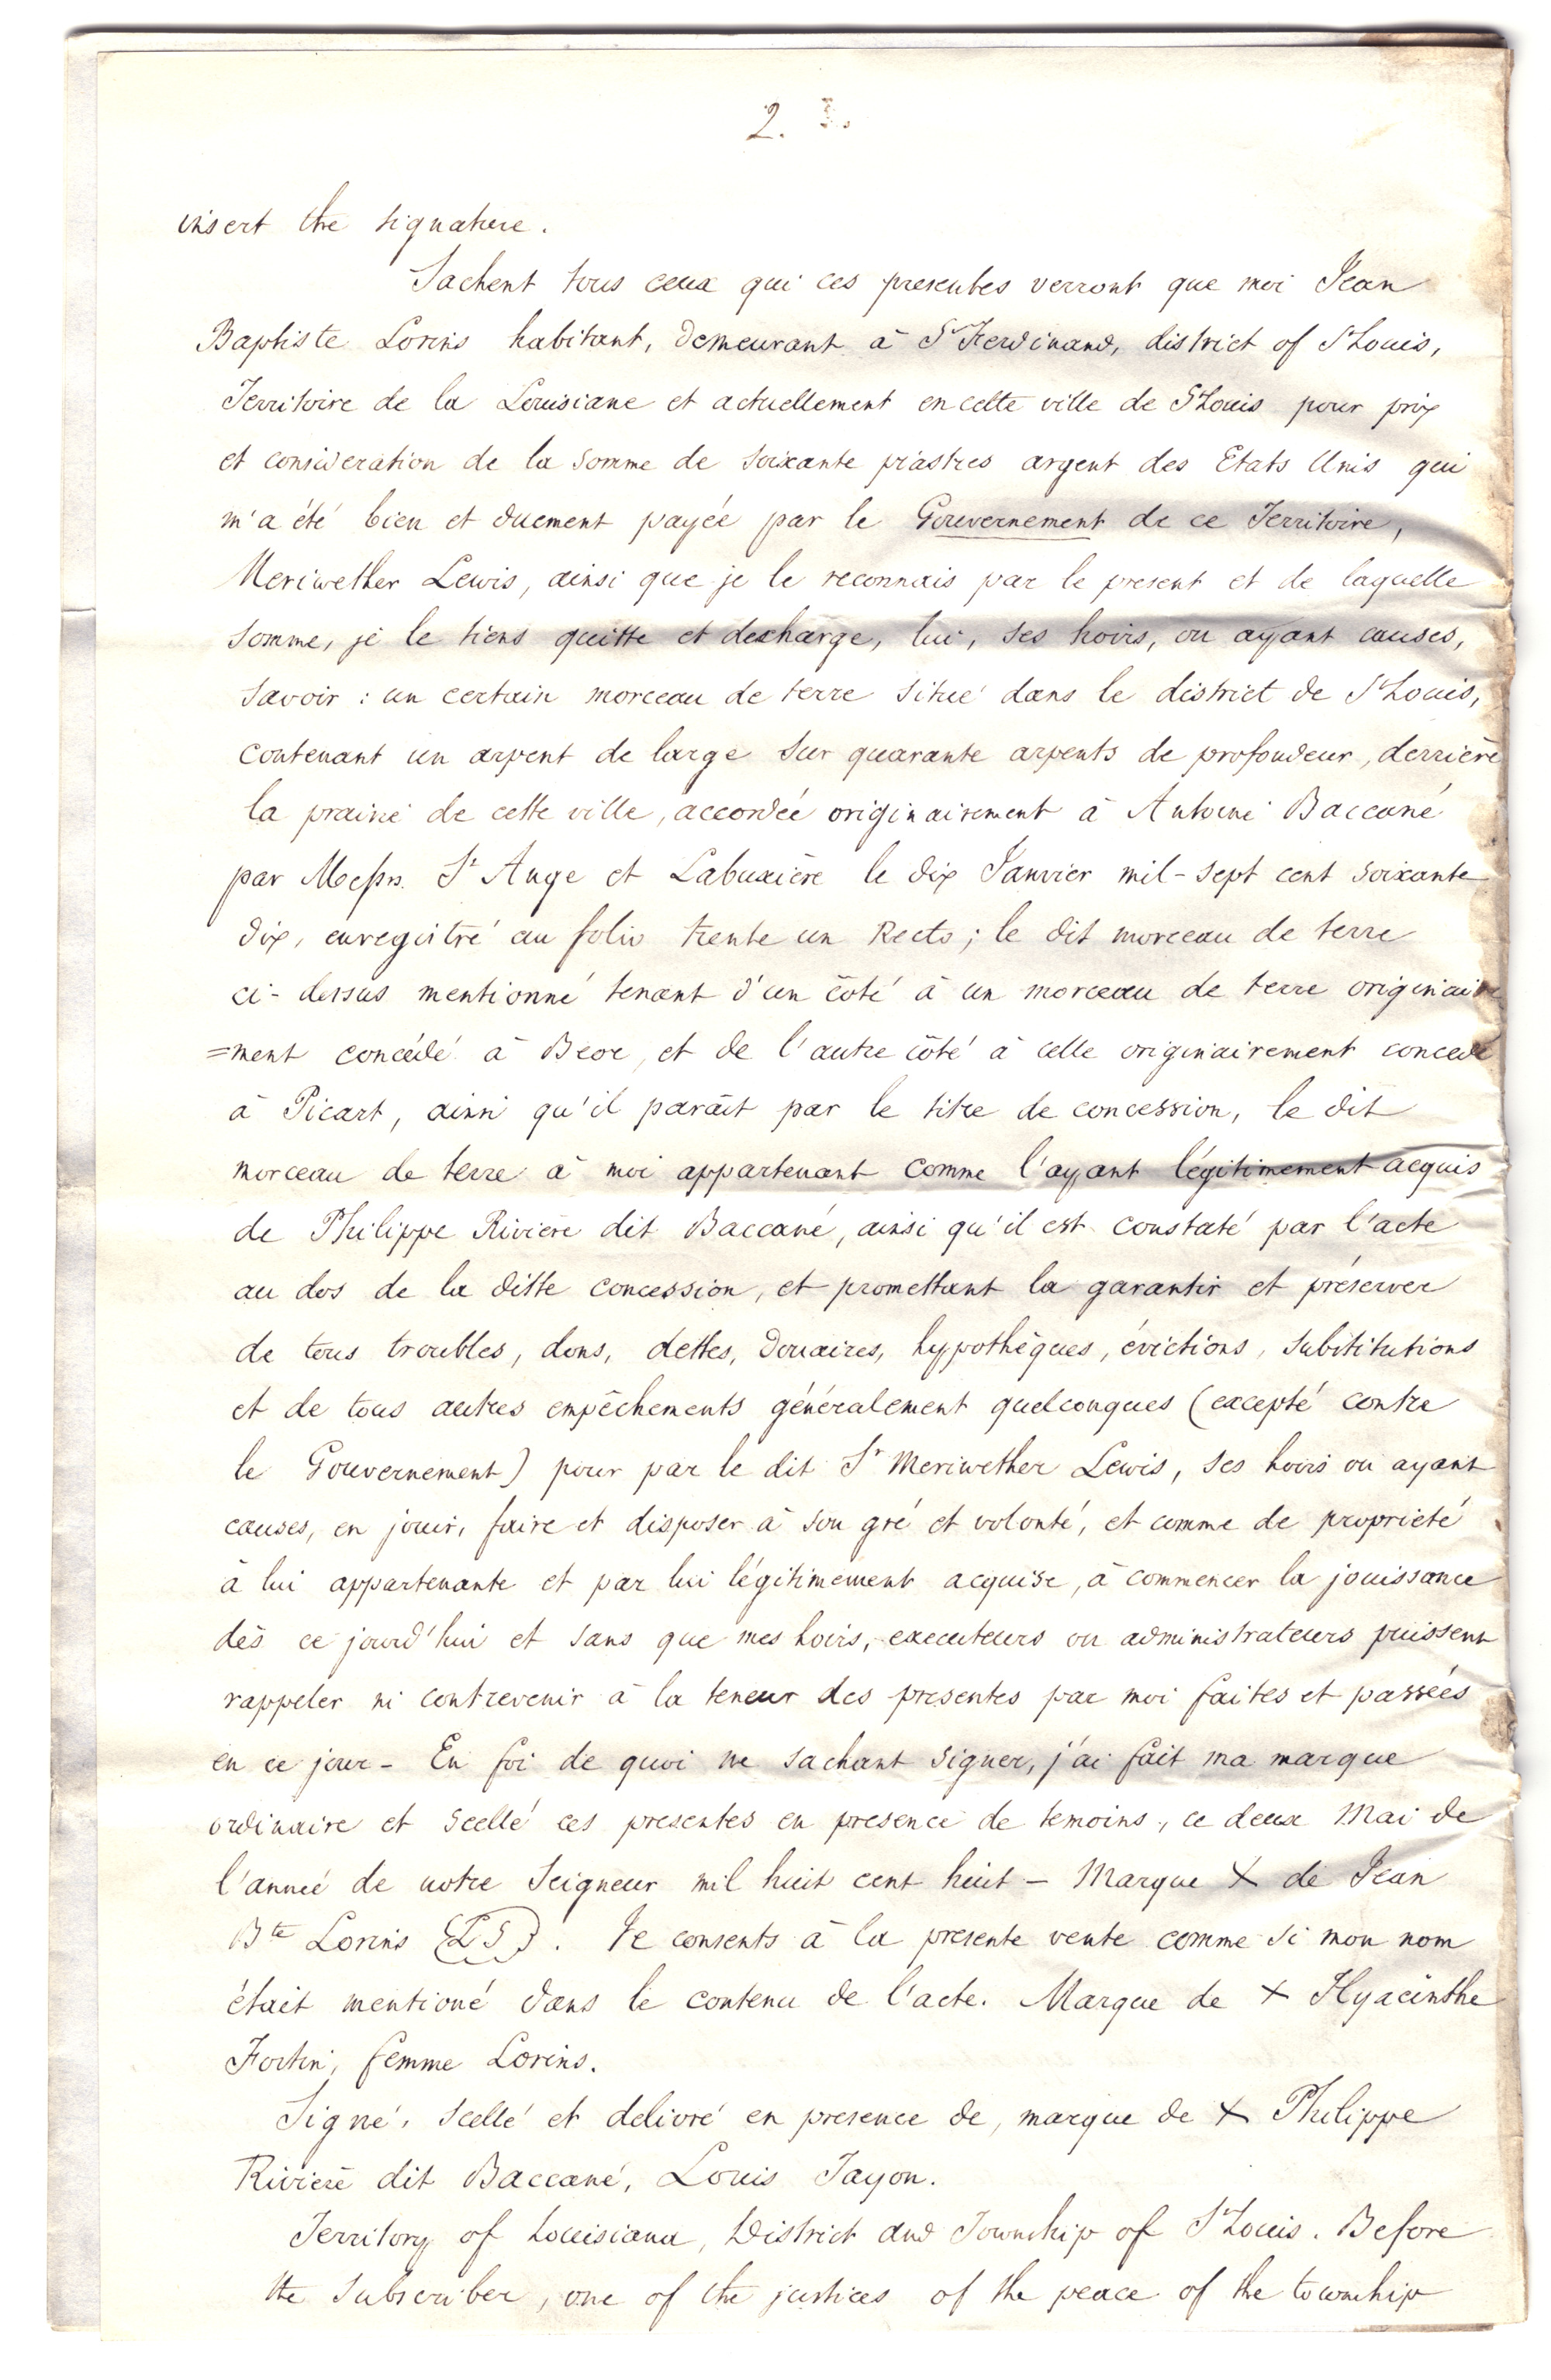 2. 3.
insert the signature.
Sachent tous ceux qui ces presentes verront que moi Jean
Baptiste Lorins habitant, demeurant à St Ferdinand, district of St Louis,
Territoire de la Louisiane et actuellement en cette ville de St Louis pour prix
et consideration de la somme de soixante piastres argent des Etats Unis qui
m'a été bien et duement payée par le Gouvernement de ce Territoire,
Meriwether Lewis, ainsi que je le reconnais par le present et de laquelle
somme, je le tiens quitte et decharge, lui, ses hoirs, ou ayant causes,
savoir : un certain morceau de terre situé dans le district de St Louis,
contenant un arpent de large sur quarante arpents de profondeur, derrière
la prairie de cette ville, accordée originairement à Antoine Baccané
par Messrs. St Ange et Labuxière le dix Janvier mil-sept cent soixante
dix, enregistré au folio trente un Recto; le dit morceau de terre
ci-dessus mentionné tenant d'un côté à un morceau de terre originaire
=ment concédé à Beor, et de l'autre côté à celle originairement concede
à Picart, ainsi qu'il parait par le titre de concession, le dit
morceau de terre à moi appartenant comme l'ayant légitimement acquis
de Philippe Riviere dit Baccané, ainsi qu'il est constaté par l'acte
au dos de la ditte concession, et promettant la garantir et préserver
de tous troubles, dons, dettes, Douaires, hypothèques, évictions, subititutions
et de tous autres empêchements généralement quelconques (excepté contre
le Gouvernement) pour par le dit Sr Meriwether Lewis, ses hoirs ou ayant
causes, en jouir, faire et disposer à son gré et volonté, et comme de proprieté
à lui appartenante et par lui légitimement acquise, à commencer la jouissance
dès ce jourd'hui et sans que mes hoirs, executeurs ou administrateurs puissent
rappeler ni contrevenir à la teneur des presentes par moi faites et passées
en ce jour - En foi de quoi ne sachant signer, j'ai fait ma marque
ordinaire et scellé ces presentes en presence de temoins, ce deux Mai de
l'année de notre Seigneur mil huit cent huit - Marque X de Jean
Bte Lorins (LS). Je consents à la presente vente comme si mon nom
était mentioné dans le contenu de l'acte. Marque de X Hyacinthe
Fortin, femme Lorins.
Signé, scellé et delivré en presence de, marque de X Philippe
Riviere dit Baccané, Louis Tayon.
Territory of Louisiana, District and Township of St Louis. Before
the Subscriber, one of the justices of the peace of the township